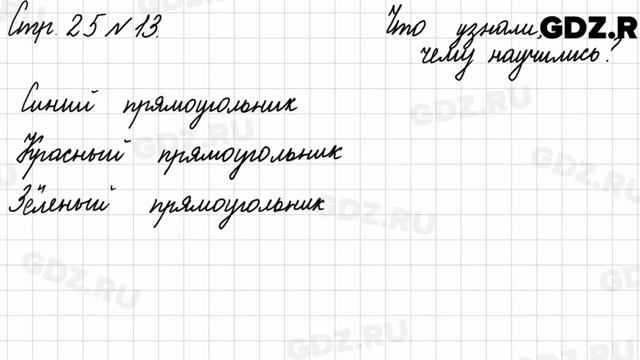 Стр. 25 № 13.
Что узнали,
чему научились?
GDZ.R
Синий прямоугольник
Красный прямоугольник
Зелёный прямоугольник
GDZ.RU
GDZ.RU
GDZ.RU
GDZ.RU
GDZ.RU
GDZ.RU